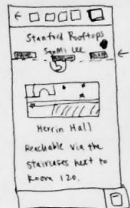 Stanford Rooftops
SeoMi Lee
Herrin Hall
Reachable via the
staircases next to
Room 120.